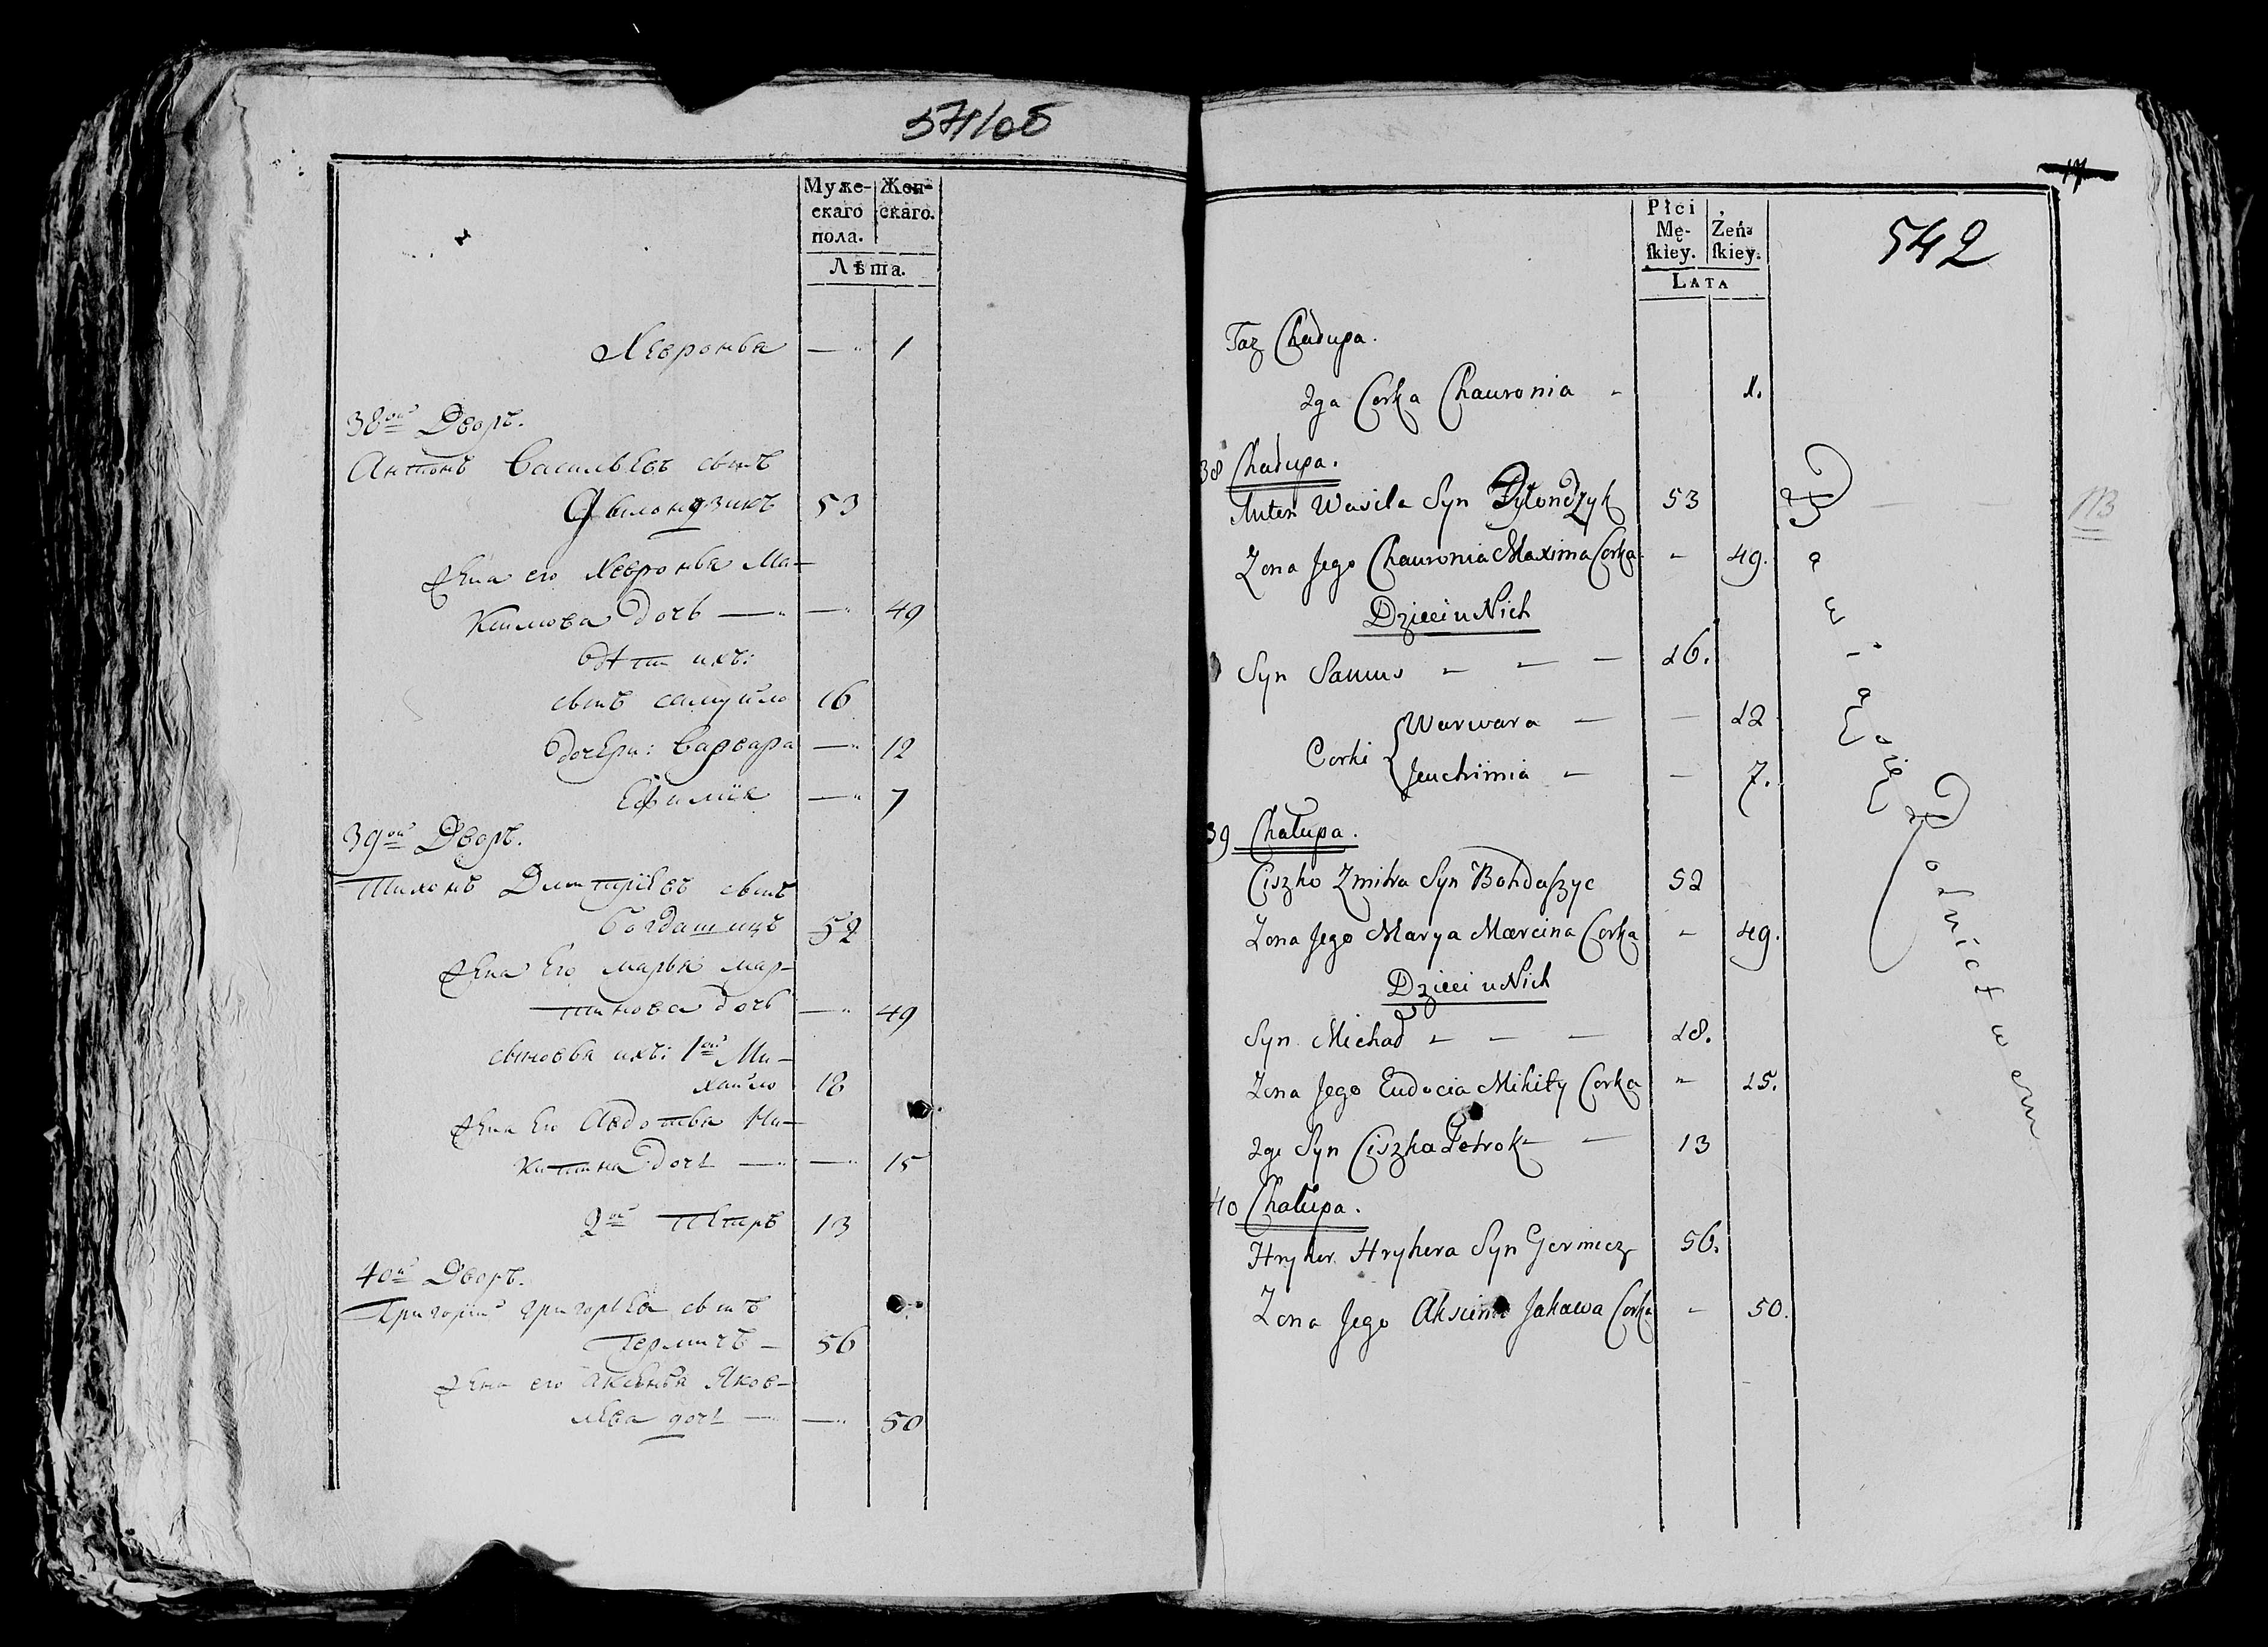 541об
Муже- Жен-
скаго скаго.
пола.
Лѣта.
Хевронья — 1
38ой Дворъ.
Антонъ Васильевъ сынъ
53
Жена его Хевронья Ма-
ксимова дочь — — 49
Дѣти ихъ:
сынъ самуйло 16
Дочери: Варвара — 12
Ефимія — 7
39ой Дворъ.
Тихонъ Дмитріевъ сынъ
Богдашицъ 52
Жена Его марья мар-
тинова дочь — 49
сыновья ихъ: 1ой Ми-
хайло 18
Жена Его Авдотья Ни-
китина дочь — — 15
2ой Петръ 13
40ой Дворъ.
Григорій григорьевъ сынъ
Гермичъ — 56
Жена его Аксенья Яков-
лева дочь — — 50
17
542
Płci
Mę- Żeń-
ſkiey. ſkiey.
LATA
Taz Chałupa.
2ga Corka Chauronia - 1.
38 Chałupa.
Anton Wasila Syn Dyłondzyk 53
113
Zona Jego Chauronia Maxima Corka - 49.
Dzieci u Nich
Syn Samus - - - 16.
Corki Warwara — — 12
Jeuchimia - — 7.
39 Chałupa.
Ciszko Zmitra Syn Bohdaszyc 52
Zona Jego Marya Marcina Corka - 49.
Dzieci u Nich
Syn Michał - - — 18.
Zona Jego Eudocia Mikity Corka - 15.
2gi Syn Ciszka Petrok - — 13
40 Chałupa.
Hryhor Hryhora Syn Germicz 56.
Zona Jego Aksienia Jakawa Corka - 50.
Bawią się Rolnictwem